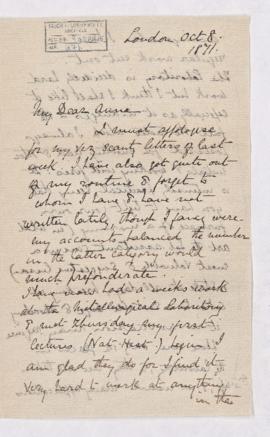 London Oct 8.
1871.
My Dear Anne
I must apologise
for my very scant letters of last
week. I have also got quite out
of my routine & forget to
whom I have & have not
written lately, though I fancy were
my accounts balanced the number
in the latter category would
much preponderate.
I have now had a weeks work
at the Metallurgical Laboratory
& next Thursday my first
lectures (Nat. Hist.) begin. I
am glad they do for I find it
very hard to work at anything
in the